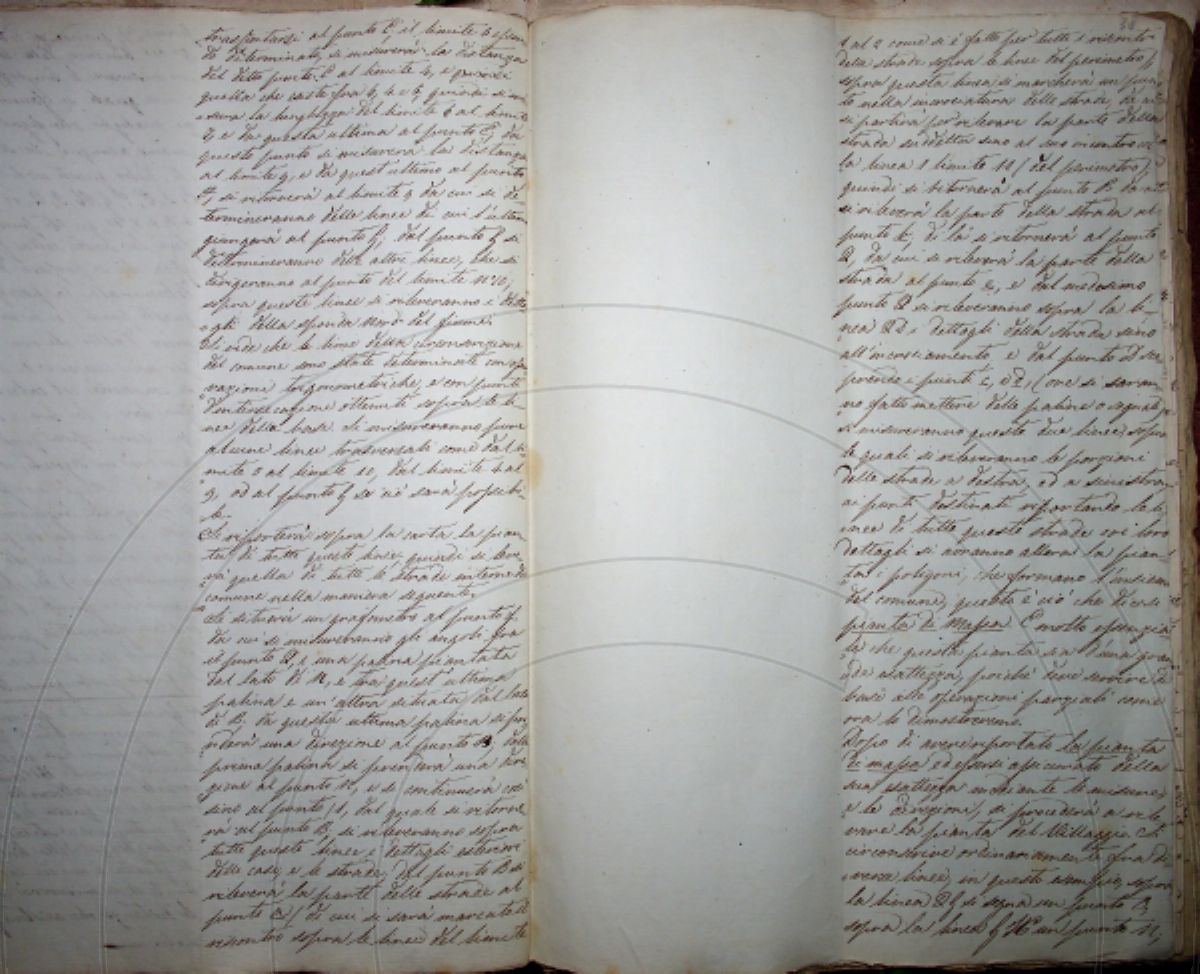 trasportarsi al punto C il limite 6 essen
do determinato, si misurerà la distanza
del detto punto C al limite 7, e quindi
quella che esiste fra 7, e 6, quindi si mi
surerà la lunghezza del limite 6 al limite
7, e da questa ultima al punto
questo punto si misurerà la distanza
al limite 9, e da quest'ultimo al punto
si ritornerà al limite 9 da cui si de
termineranno delle linee di cui l'ultima
giungerà al punto f, dal punto f si
determineranno delle altre linee, che si
dirigeranno al punto del limite N° 10,
sopra queste linee si rileveranno i detta
gli della sponda Nord del fiume.
Si vede che le linee della circonscrizione
del comune sono state determinate con ope
razioni trigonometriche, e con punti
d'intersecazione ottenuti sopra le li
nee della base. Si misureranno pure
alcune linee trasversali come dal li
mite 0 al limite 10, dal limite 4 al
9, od al punto f se ciò sarà possibi
le.
Si riporterà sopra la carta la pian
ta di tutte queste linee, quindi si leve
rà quella di tutte le strade interne del
comune nella maniera seguente.
Si situerà un grafometro al punto f.
da cui si misureranno gli angoli fra
il punto Q, e una palina piantata
dal lato di N, e tra quest'ultima
palina e un'altra situata dal lato
di B. da questa ultima palina si pren
derà una direzione al punto B, dalla
prima palina si prenderà una dire
zione al punto N, e si continuerà così
sino al punto 11, dal quale si ritorne
rà al punto B, si rileveranno sopra
tutte queste linee i dettagli esteriori
delle case, e le strade, dal punto B si
rileverà la parte delle strade al
punto (di cui si sarà marcato il
riscontro sopra le linee del limite
38
1 al 2 come si è fatto per tutti i riscontri
delle strade sopra le linee del perimetro)
sopra questa linea si marcherà un pun
to nella incrociatura delle strade, da cui
si partirà per rilevare la parte della
strada suddetta sino al suo incontro con
la linea 1 limite 11 (del perimetro),
quindi si ritornerà al punto B. da cui
si rileverà la parte della strada al
punto k, di là si ritornerà al punto
Q, da cui si rileverà la parte della
strada al punto 2, e dal medesimo
punto Q si rileveranno sopra la li
nea Qd i dettagli della strada sino
all'incrociamento e dal punto D sco
prendo i punti (ove si saran
no fatte mettere delle paline o segnali)
si misureranno queste due linee, sopra
le quali si rileveranno le porzioni
delle strade a destra, ed a sinistra
ai punti destinati riportando le li
nee di tutte queste strade coi loro
dettagli si avranno allora la pian
ta i poligoni, che formano l'insieme
del comune, questo è ciò che dicesi
pianta di Massa. È molto essenzia
le che questa pianta sia d'una gran
de esattezza, poichè deve servire di
base alle operazioni parziali come
ora lo dimostreremo.
Dopo di avere riportato la pianta
di massa ed essersi assicurato della
sua esattezza mediante le misure,
e le direzioni, si procederà a rile
vare la pianta del Villaggio. Si
circonscrive ordinariamente fra di
verse linee, in questo esempio, sopra
la linea Qf si segna un punto B,
sopra la linea f K un punto N,